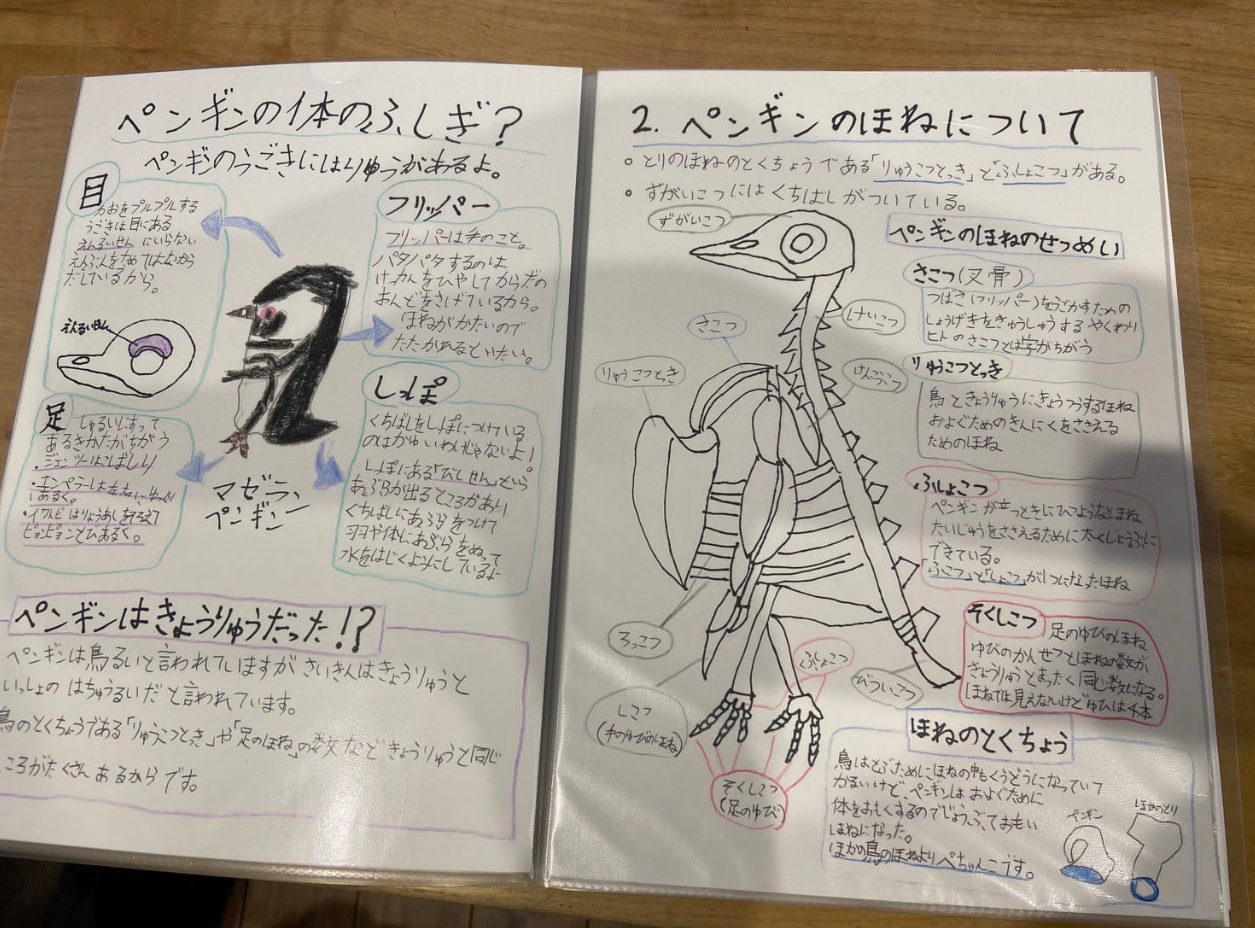 ペンギンの体のふしぎ?
ペンギンのうごきにはりゆうがあるよ。
目
かおをプルプルする
うごきは目にある
えんるいせんにいらない
えんぶんをためてはなから
だしているから。
えんるいせん
フリッパー
フリッパーは手のこと。
パタパタするのは
けっかんをひやしてからだの
おんどをさげているから。
ほねがかたいので
たたかれるといたい。
足
しゅるいによって
あるきかたがちがう
・ジェンツーはこばしり
・エンペラーは左右にゆっくり
あるく。
・イワトビはりょうあしをそろえて
ピョンピョンとびあるく。
マゼラン
ペンギン
しっぽ
くちばしをしっぽにつけている
のはかゆいわけじゃないよ!
しっぽにある「びしせん」という
あぶらが出るところがあり
くちばしにあぶらをつけて
羽や体にあぶらをぬって
水をはじくようにしているよ
ペンギンはきょうりゅうだった!?
ペンギンは鳥るいと言われていますがさいきんはきょうりゅうと
いっしょのはちゅうるいだと言われています。
鳥のとくちょうである「りゅうこつとっき」や「足のほね」の数などきょうりゅうと同じ
ころがたくさんあるからです。
2. ペンギンのほねについて
○ とりのほねのとくちょうである「りゅうこつとっき」と「ふしょこつ」がある。
○ ずがいこつにはくちばしがついている。
ずがいこつ
けいこつ
さこつ
けんこうこつ
りゅうこつとっき
ろっこつ
しこつ
(手のゆびのほね)
ふしょこつ
びついこつ
そくしこつ
(足のゆび)
ペンギンのほねのせつめい
さこつ(叉骨)
つばさ(フリッパー)をうごかすための
しょうげきをきゅうしゅうするやくわり
ヒトのさこつとは字がちがう
りゅうこつとっき
鳥ときょうりゅうにきょうつうするほね
およぐためのきんにくをささえる
ためのほね
ふしょこつ
ペンギンが立つときにひつようなほね
たいじゅうをささえるために太くじょうぶに
できている。
「ふこつ」と「しょこつ」が1つになったほね
そくしこつ
足のゆびのほね
ゆびのかんせつとほねの数が
きょうりゅうとまったく同じ数になる。
ほねでは見えないけどゆびは4本
ほねのとくちょう
鳥はとぶためにほねの中もくうどうになっていて
かるいけど、ペンギンはおよぐために
体をおもくするのでじょうぶでおもい
ほねになった。
ほかの鳥のほねよりぺちゃんこです。
ペンギン
ほかのとり